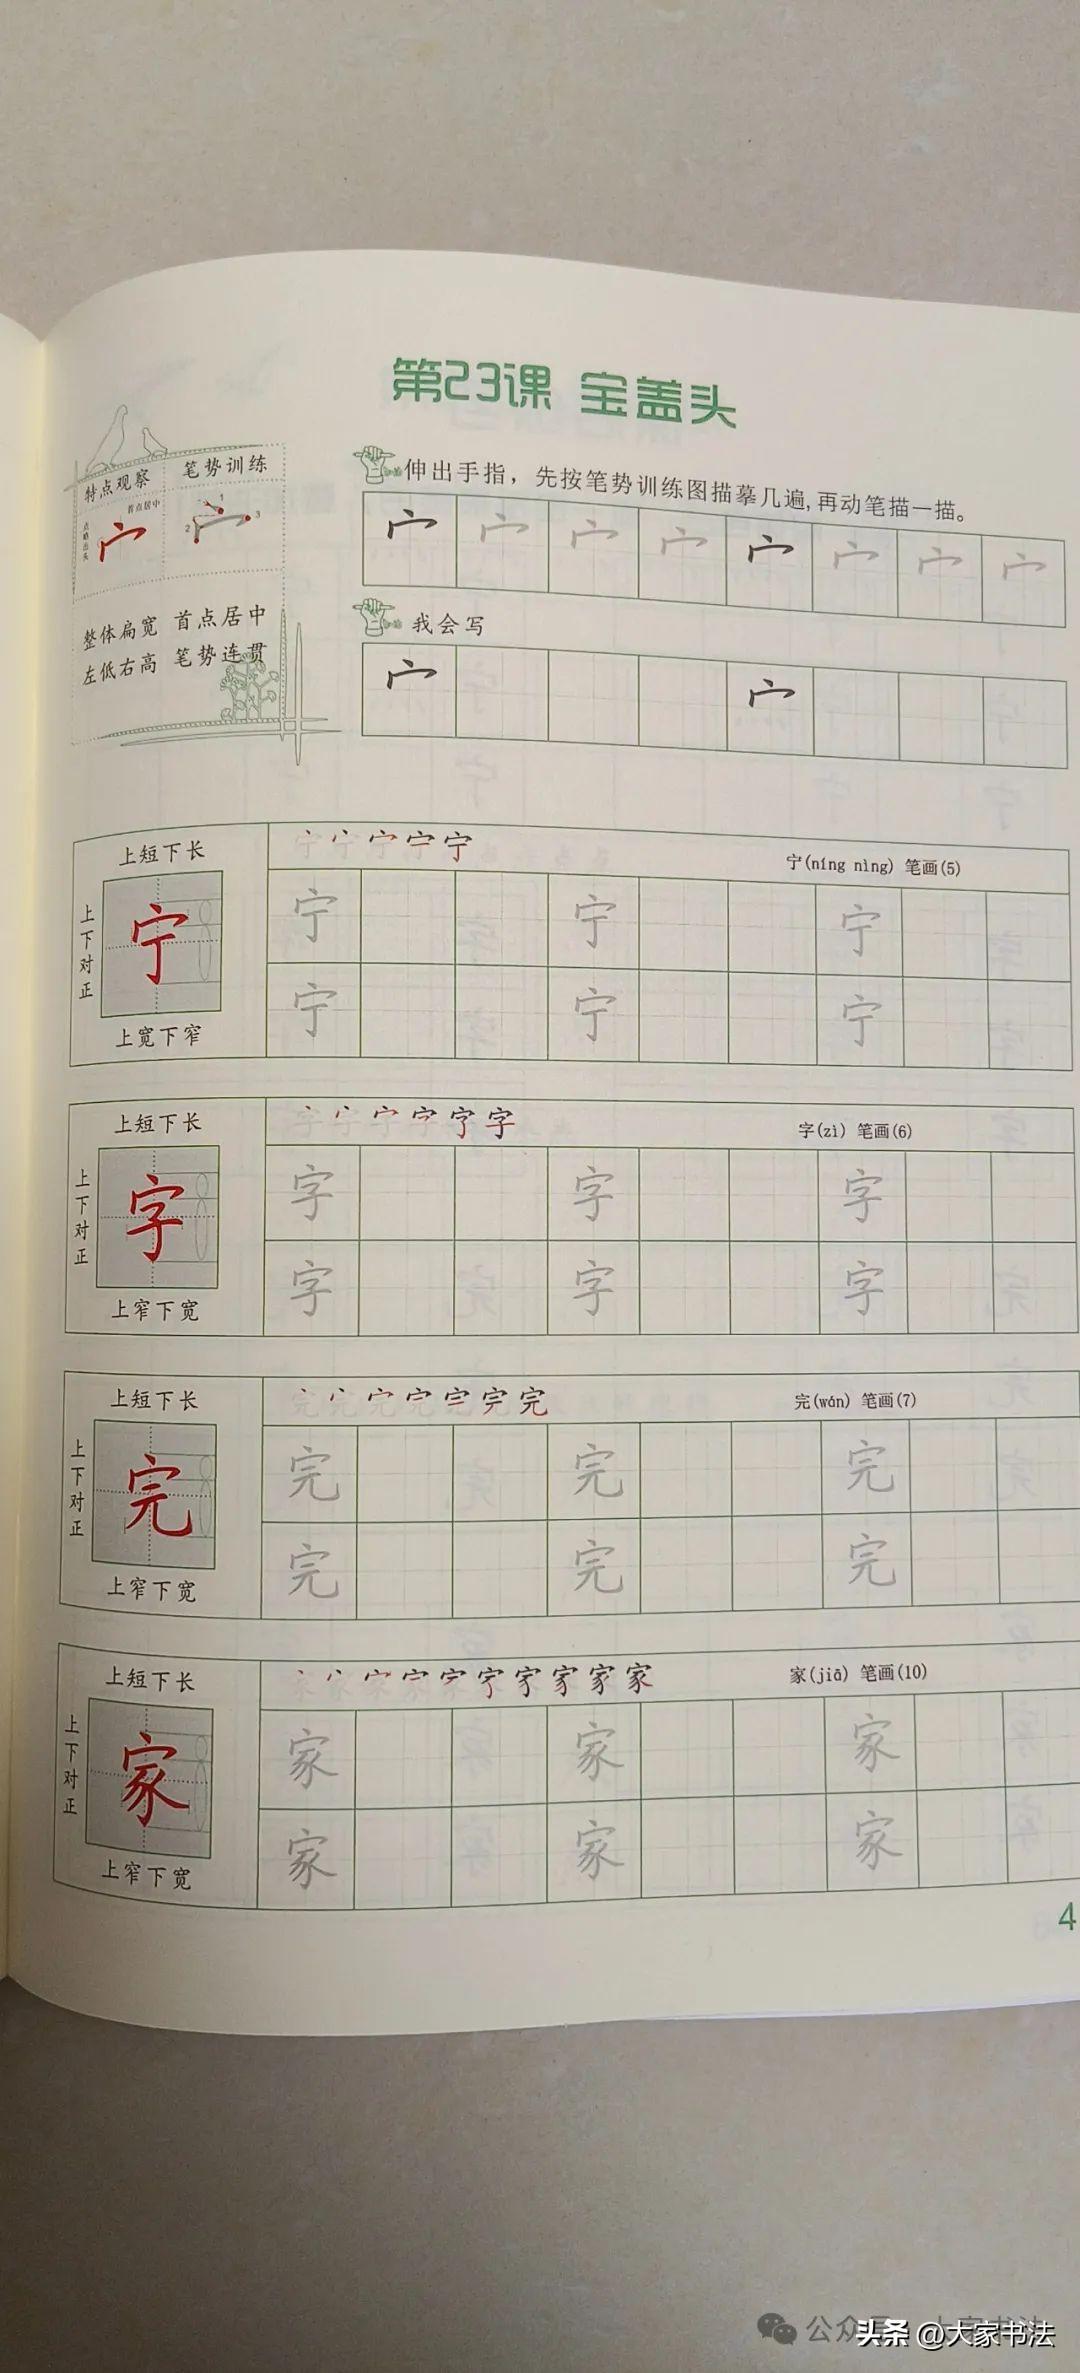 第23课 宝盖头
特点观察 笔势训练
首点居中
点略出头
宀
1
2
3
整体扁宽 首点居中
左低右高 笔势连贯
伸出手指，先按笔势训练图描摹几遍,再动笔描一描。
宀 宀 宀 宀 宀 宀 宀 宀
我会写
宀 宀
上短下长
上下对正
宁
上宽下窄
宁(níng nìng) 笔画(5)
宁 宁 宁
宁 宁 宁
上短下长
上下对正
字
上窄下宽
字(zì) 笔画(6)
字 字 字
字 字 字
上短下长
上下对正
完
上窄下宽
完(wán) 笔画(7)
完 完 完
完 完 完
上短下长
上下对正
家
上窄下宽
家(jiā) 笔画(10)
家 家 家
家 家 家
4
公众号
头条 @大家书法